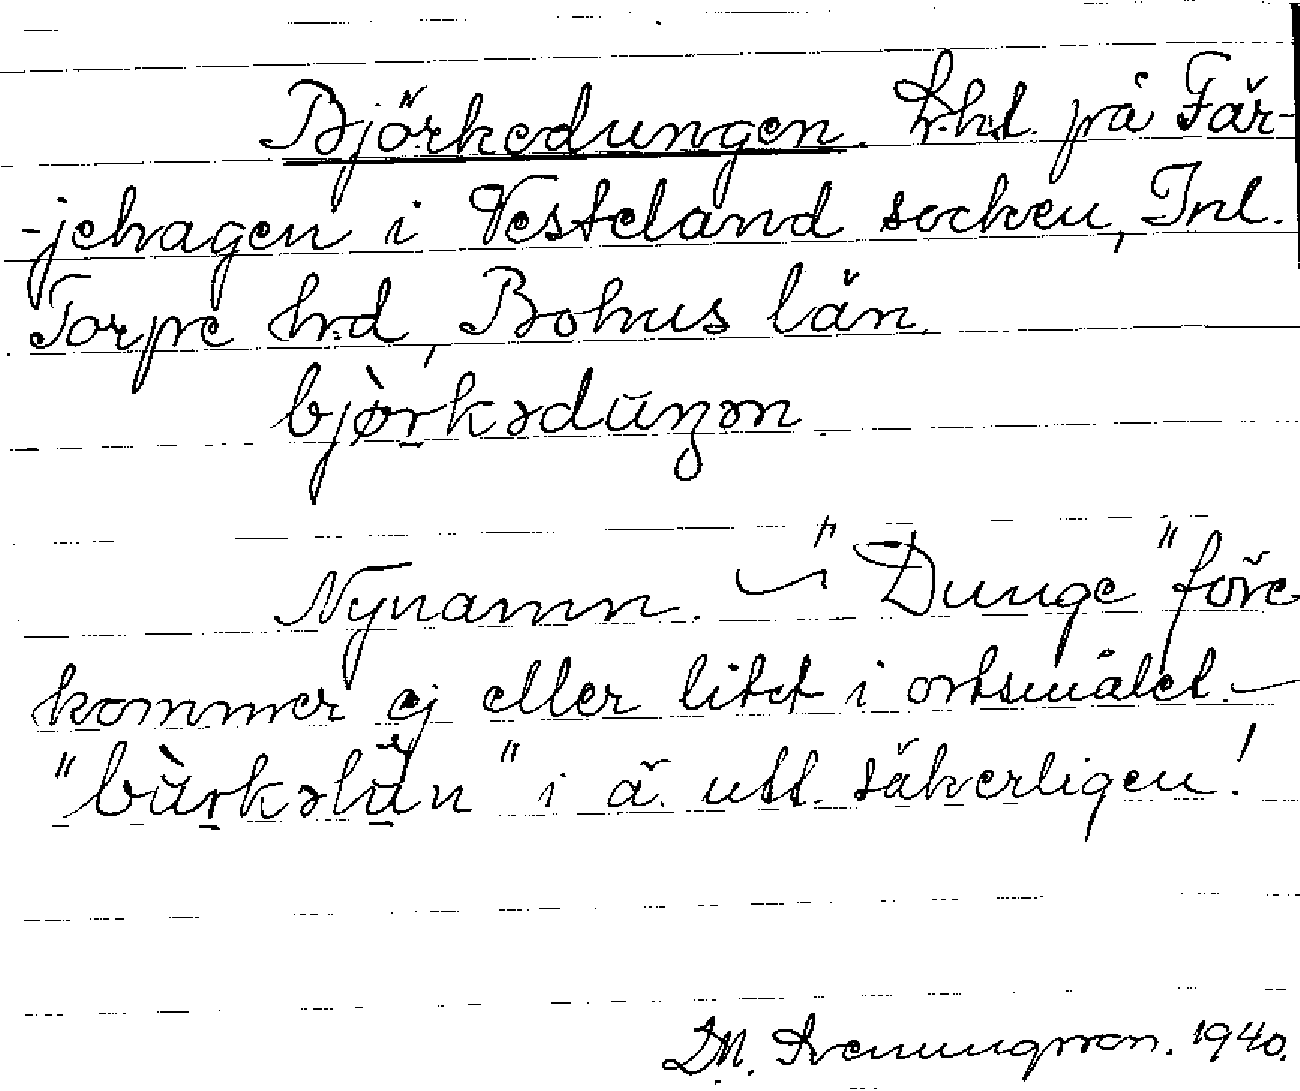 Björkedungen. Lht. på Fär-
-jehagen i Vesteland socken, Inl.
Torpe hrd, Bohus län.
bjòrkəduŋən
Nynamn. — "Dunge" före
kommer ej eller litet i ortsmålet. —
"bùrkəlùn" i ä. utt. säkerligen!
D.N. Svenungsson. 1940.